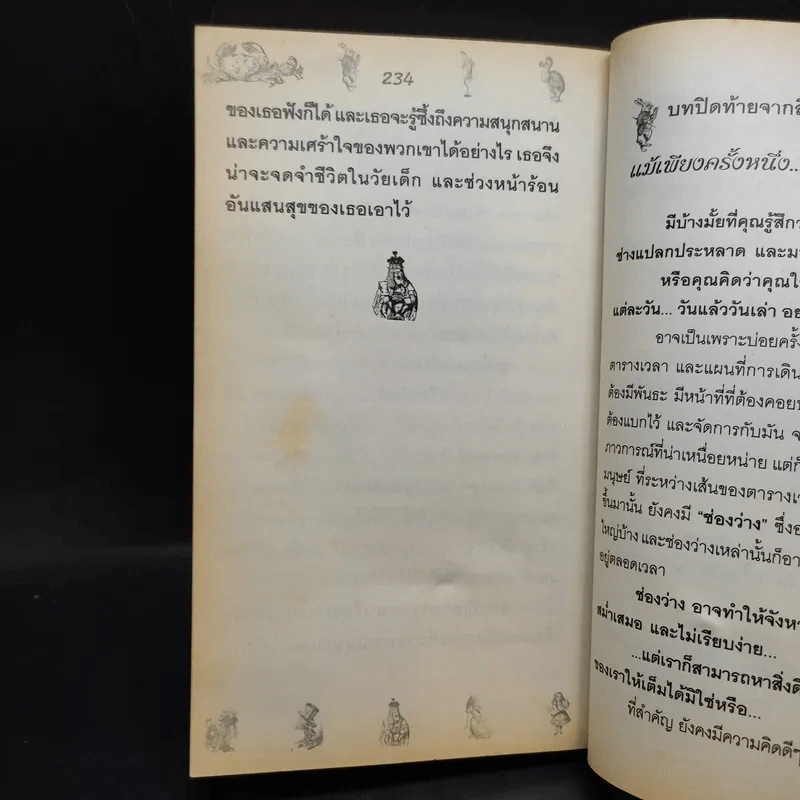 234
ของเธอฟังก็ได้ และเธอจะรู้ซึ้งถึงความสนุกสนาน
และความเศร้าใจของพวกเขาได้อย่างไร เธอจึง
น่าจะจดจำชีวิตในวัยเด็ก และช่วงหน้าร้อน
อันแสนสุขของเธอเอาไว้
บทปิดท้ายจาก
แม้เพียงครั้งหนึ่ง...
มีบ้างมั้ยที่คุณรู้สึก
ช่างแปลกประหลาด และ
หรือคุณคิดว่าคุณ
แต่ละวัน... วันแล้ววันเล่า
อาจเป็นเพราะบ่อยครั้ง
ตารางเวลา และแผนที่การเดิน
ต้องมีพันธะ มีหน้าที่ที่ต้องคอย
ต้องแบกไว้ และจัดการกับมัน
ภาวการณ์ที่น่าเหนื่อยหน่าย แต่
มนุษย์ ที่ระหว่างเส้นของตาราง
ขึ้นมานั้น ยังคงมี “ช่องว่าง” ซึ่ง
ใหญ่บ้าง และช่องว่างเหล่านั้นก็
อยู่ตลอดเวลา
ช่องว่าง อาจทำให้
สม่ำเสมอ และไม่เรียบง่าย...
...แต่เราก็สามารถหาสิ่ง
ของเราให้เต็มได้มิใช่หรือ...
ที่สำคัญ ยังคงมีความคิดดีๆ